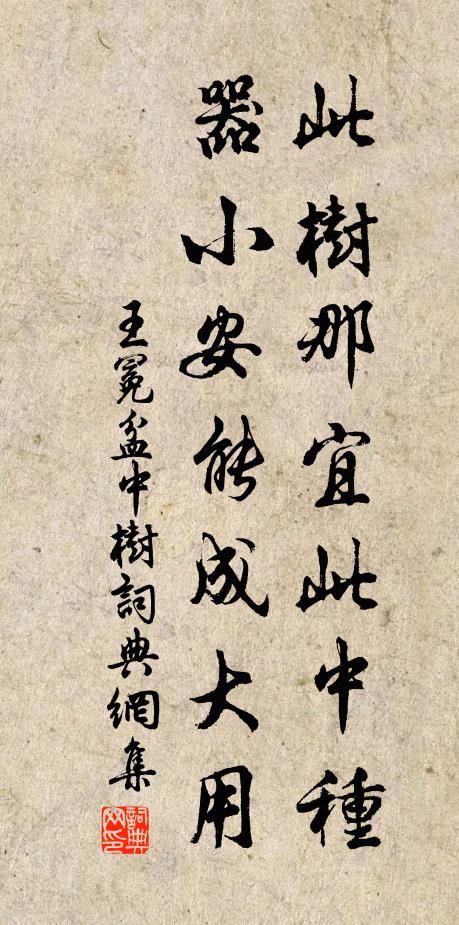 此樹那宜此中種
器小安能成大用
王冕盆中樹詞典網集
詞典网印